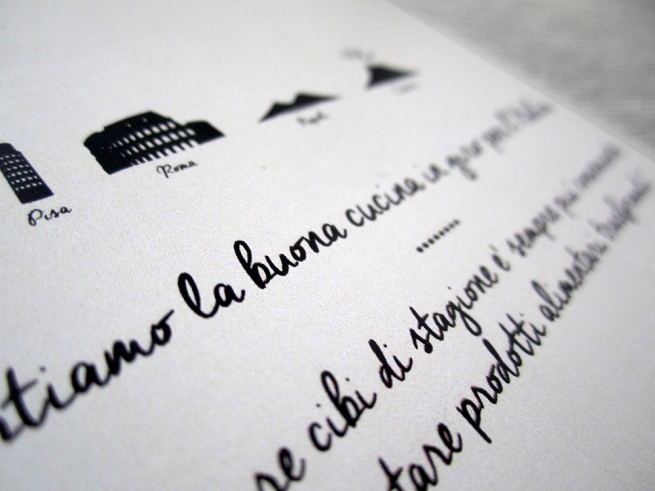 Pisa
Roma
tiamo la buona cucina in giro per l'Italia
........
se cibi di stagione e' sempre più
tare prodotti alimentari